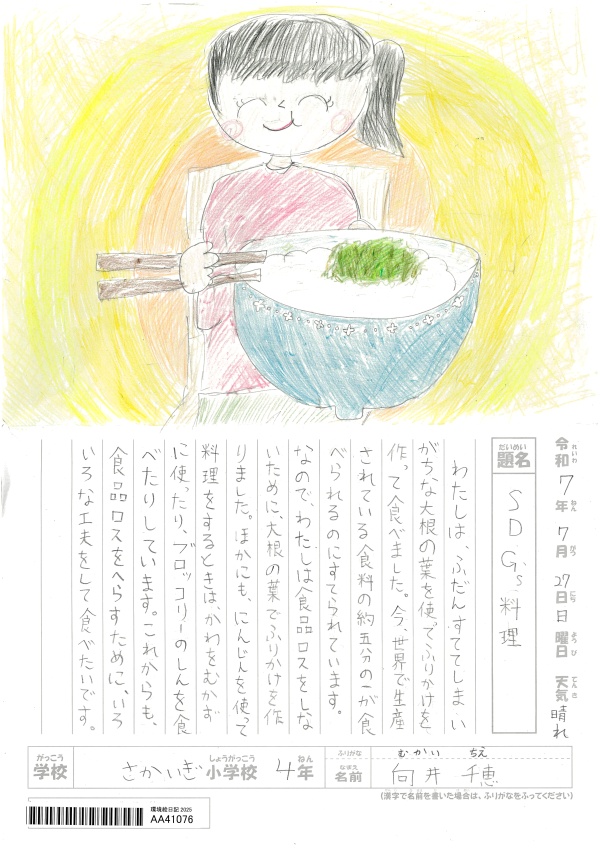 令和れいわ 7年ねん 7月がつ 27日にち 日曜日ようび 天気てんき 晴れ
題名だいめい SDGs料理
わたしは、ふだんすててしまい
がちな大根の葉を使ってふりかけを
作って食べました。今、世界で生産
されている食料の約五分の一が食
べられるのにすてられています。
なので、わたしは食品ロスをしな
いために、大根の葉でふりかけを作
りました。ほかにも、にんじんを使って
料理をするときは、かわをむかず
に使ったり、ブロッコリーのしんを食
べたりしています。これからも、
食品ロスをへらすために、いろ
いろな工夫をして食べたいです。
学校がっこう さかいぎ小学校しょうがっこう 4年ねん
ふりがな むかい ちえ
名前なまえ 向井 千恵
(漢字で名前を書いた場合は、ふりがなをふってください)
環境絵日記 2025
AA41076